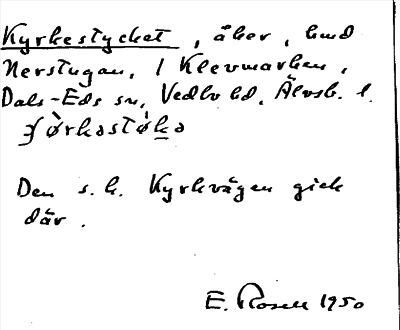 Kyrkestycket, åker, hmd
Nerstugan, 1 Klevmarken,
Dals-Eds sn, Vedbo hd, Älvsb. l.
Den s.k. Kyrkvägen gick
där.
E. Rosell 1950